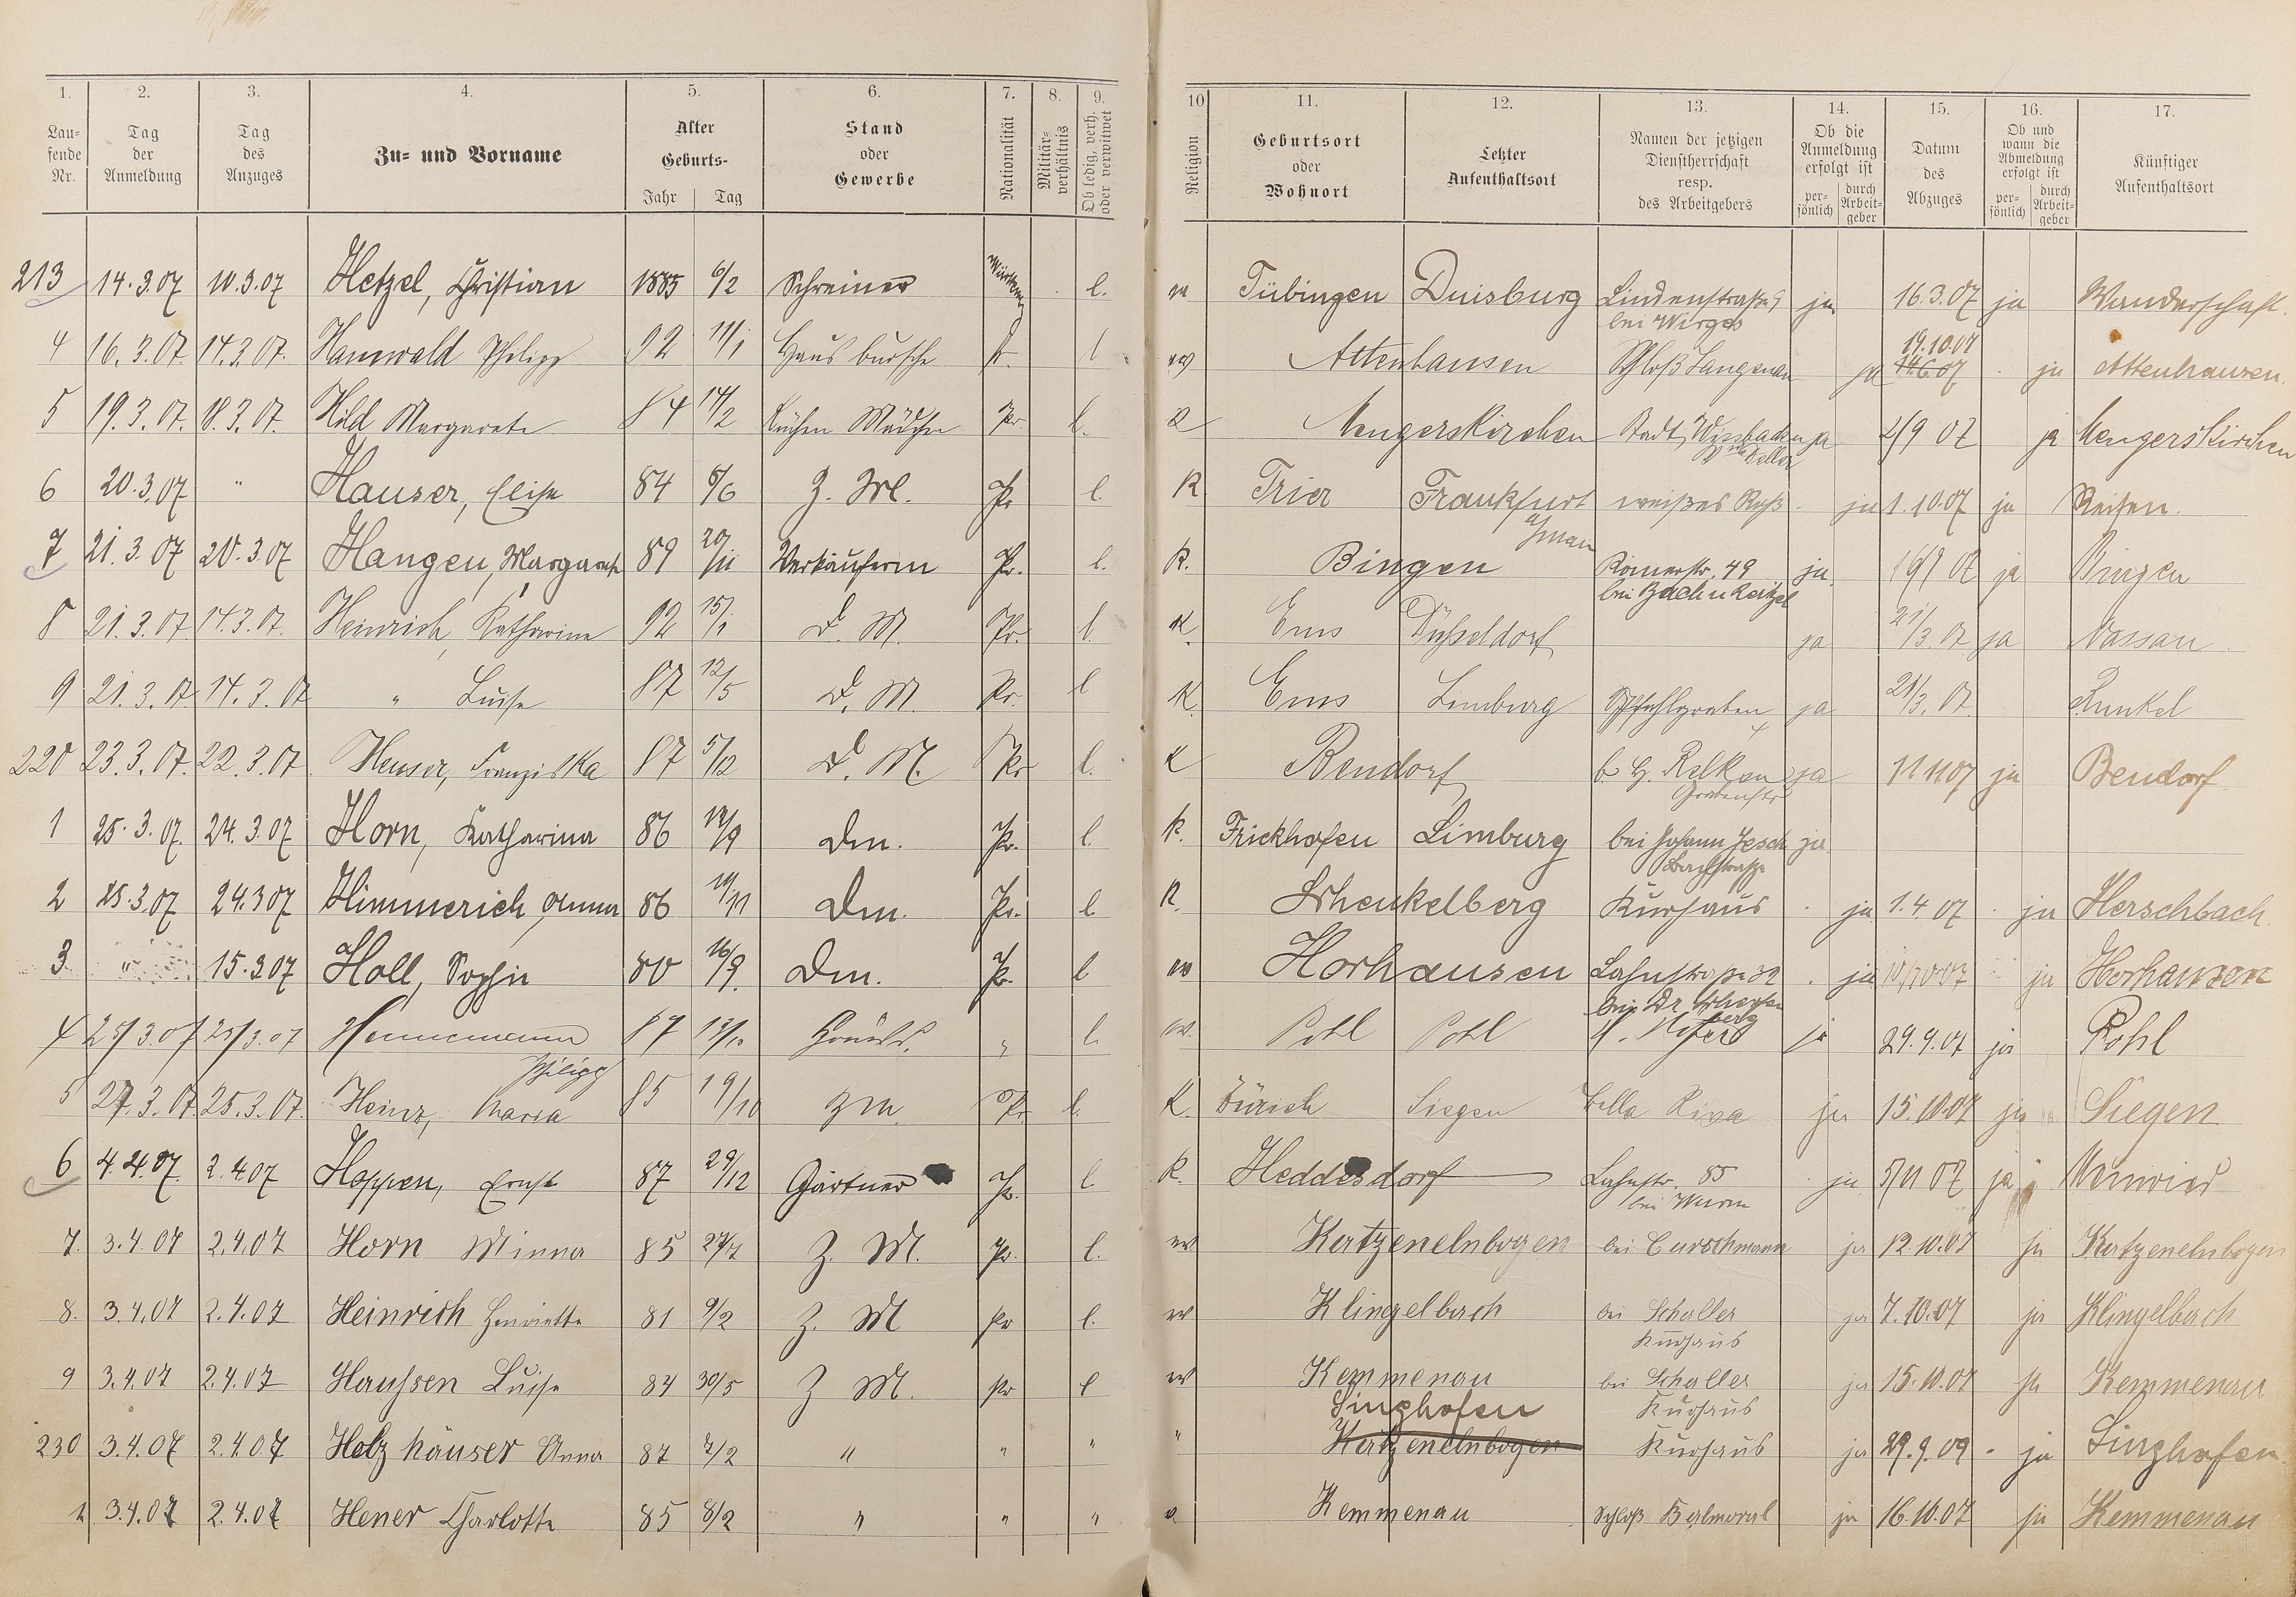 1. 2. 3. 4. 5. 6. 7. 8. 9. 10 11. 12. 13. 14. 15. 16. 17.
Laufende Nr. Tag der Anmeldung Tag des Anzuges Zu= und Vorname Alter Geburts- Jahr Tag Stand oder Gewerbe Nationalität Militär-verhältnis Ob ledig, verh. oder verwitwet Religion Geburtsort oder Wohnort Letzter Aufenthaltsort Namen der jetzigen Dienstherrschaft resp. des Arbeitgebers Ob die Anmeldung erfolgt ist per-sönlich durch Arbeit-geber Datum des Abzuges Ob und wann die Abmeldung erfolgt ist per-sönlich durch Arbeit-geber Künftiger Aufenthaltsort
213 14.3.07 10.3.07 Hetzel, Christian 1885 6/2 Schreiner l. Tübingen Duisburg Lindenstraße ja 16.3.07 ja Wanderschaft.
bei Wirges
4 16.3.07 14.3.07. Hannwald Philipp 92 11/1 Hausbursche Pr. l ev Attenhausen Schloß Langenau ja 19.10.07 14.6.07 ja Attenhausen.
5 19.3.07. 18.3.07. Hild Margarete 84 14/2 Küchen Mädchen Pr. l. K Mengerskirchen Stadt Wiesbaden ja 2/9 07 ja Mengerskirchen
6 20.3.07 " Hauser, Elise 84 8/6 Z. Ml. Pr l. K Trier Frankfurt a/main weißes Roß ja 1.10.07 ja Reisen.
7 21.3.07 20.3.07 Hangen, Margareth 89 20/11 Verkäuferin Pr. l. K. Bingen Römerstr. 49 ja 16/9 07 ja Bingen
8 21.3.07 14.3.07. Heinrich, Katharina 92 15/1 D. M. Pr. l. K. Ems Düsseldorf ja 21/3.07 ja Nassau
9 21.3.07 14.3.07 " Luise 87 12/5 D. M. Pr. l K Ems Limburg Pfahlgraben ja 21/3.07. Runkel
220 23.3.07. 22.3.07 Heuser, Franziska 87 5/12 D. M. Pr l. K Bendorf b. H. Relken ja 11 11.07 ja Bendorf
Grabenstr
1 25.3.07. 24.3.07 Horn, Katharina 86 12/9 Dm. Pr. l. K. Frickhofen Limburg bei Johann Jesch ja
Bachstraße
2 25.3.07 24.3 07 Himmerich Anna 86 19/11 Dm. Pr. l K. Schenkelberg Kurhaus ja 1.4 07 ja Herschbach
3 " 15.3.07 Holl, Sophie 80 16/9. Dm. Pr. l ev Horhausen Lahnstraße 32 ja 10/10 07 ja Horhausen
4 25/3.07 25/3.07 Hennemann Philipp 87 l. ev. Pohl Pohl ja 29.9.07 ja Pohl
5 27.3.07 25.3.07. Heinz, Maria 85 19/10 Zm. Pr. l. K. Zürich Siegen Bella Riva ja 15.10.07 ja Siegen
6 4.4.07. 2.4.07 Hoppen, Ernst 87 29/12 Gärtner Pr. l K. Heddesdorf Lahnstr. 85 ja 5/11 07 ja Neuwied
bei Wurm
7. 3.4.07 2.4.07 Horn Minna 85 27/7 Z. M. Pr. l. ev Katzenelnbogen bei Curschmann ja 12.10.07 ja Katzenelnbogen
8. 3.4.07 2.4.07 Heinrich Henriette 81 9/2 Z. M Pr l. ev Klingelbach bei Schaller ja 7.10.07 ja Klingelbach
Kurhaus
9 3.4.07 2.4.07 Haussen Luise 84 30/5 Z M. Pr l ev Kemmenau bei Schaller ja 15.10.07 ja Kemmenau
Singhofen Kurhaus
230 3.4.07 2.4.07 Holzhäuser Anna 87 7/2 " " " " Katzenelnbogen Kurhaus ja 29.9.09 ja Singhofen.
1. 3.4.07 2.4.07 Hener Charlotte 85 8/2 " " " Kemmenau Schloß Balmoral ja 16.10.07 ja Kemmenau